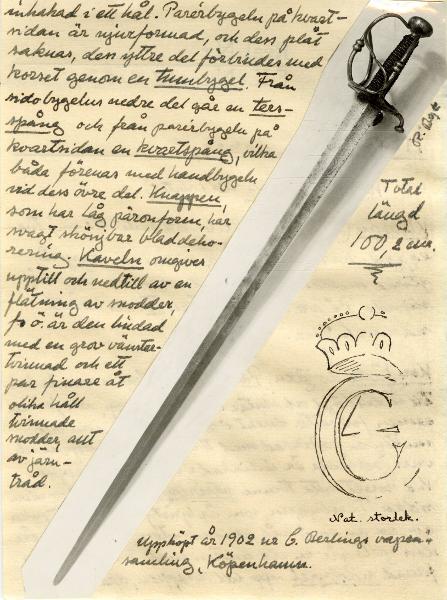 inhakad i ett hål. Parérbygeln på kvart-
sidan är njurformad, och dess plåt
saknas, dess yttre del förbindes med
korset genom en tumbygel. Från
sidobygelns nedre del går en ters-
spång och från parérbygeln på
kvartsidan en kvartspång, vilka
båda förenas med handbygeln
vid dess övre del. Knappen,
som har låg päronform, har
svagt skönjbar bladdeko-
rering. Kaveln omgives
upptill och nedtill av en
flätning av snodder,
f ö. är den lindad
med en grov vänster-
tvinnad och ett
par finare åt
olika håll
tvinnade
snodder, allt
av järn-
tråd.
Total
längd
100,2 cm
C
Nat. storlek.
Uppköpt år 1902 ur C. Berlings vapen-
samling, Köpenhamn.